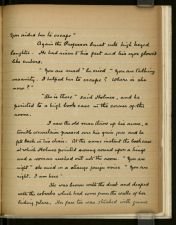 You aided her to escape"
Again the Professor burst into high keyed
laughter. He had risen to his feet and his eyes glowed
like embers.
"You are mad" he cried "You are talking
insanity. I helped her to escape? Where is she
now?"
"She is there" said Holmes, and he
pointed to a high book case in the corner of the
room.
I saw the old man throw up his arms, a
terrible convulsion passed over his grim face and he
fell back in his chair. At the same instant the book case
at which Holmes pointed swung round upon a hinge
and a woman rushed out into the room. "You are
right" she cried in a strange foreign voice. "You are
right. I am here."
She was brown with the dust and draped
with the cobwebs which had come from the walls of her
hiding place. Her face too was streaked with grime